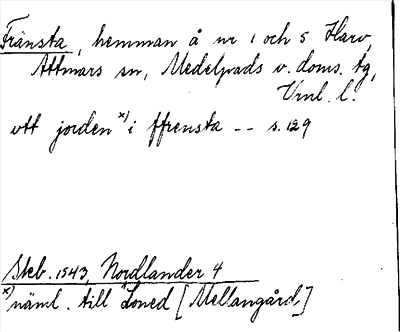 Fränsta, hemman å nr 1 och 5 Harv,
Attmars sn, Medelpads v. doms. tg,
Vrnl. l.
vtt jorden x) i ffrensta -- s. 129
Skb. 1543, Nordlander 4
x) näml. till Loned [Mellangård]